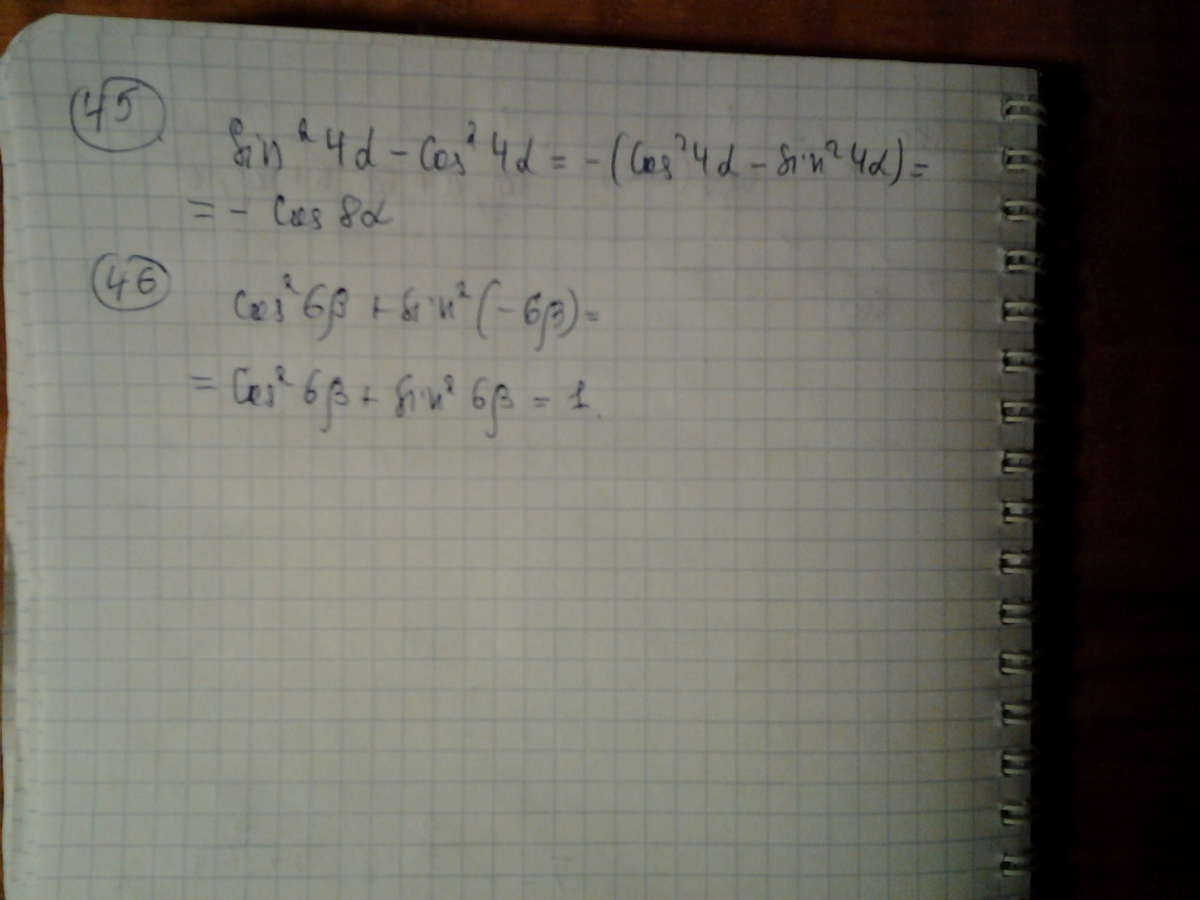 45
sin² 4α - cos² 4α = -(cos² 4α - sin² 4α) =
= - cos 8α
46
cos² 6β + sin² (-6β) =
= cos² 6β + sin² 6β = 1.